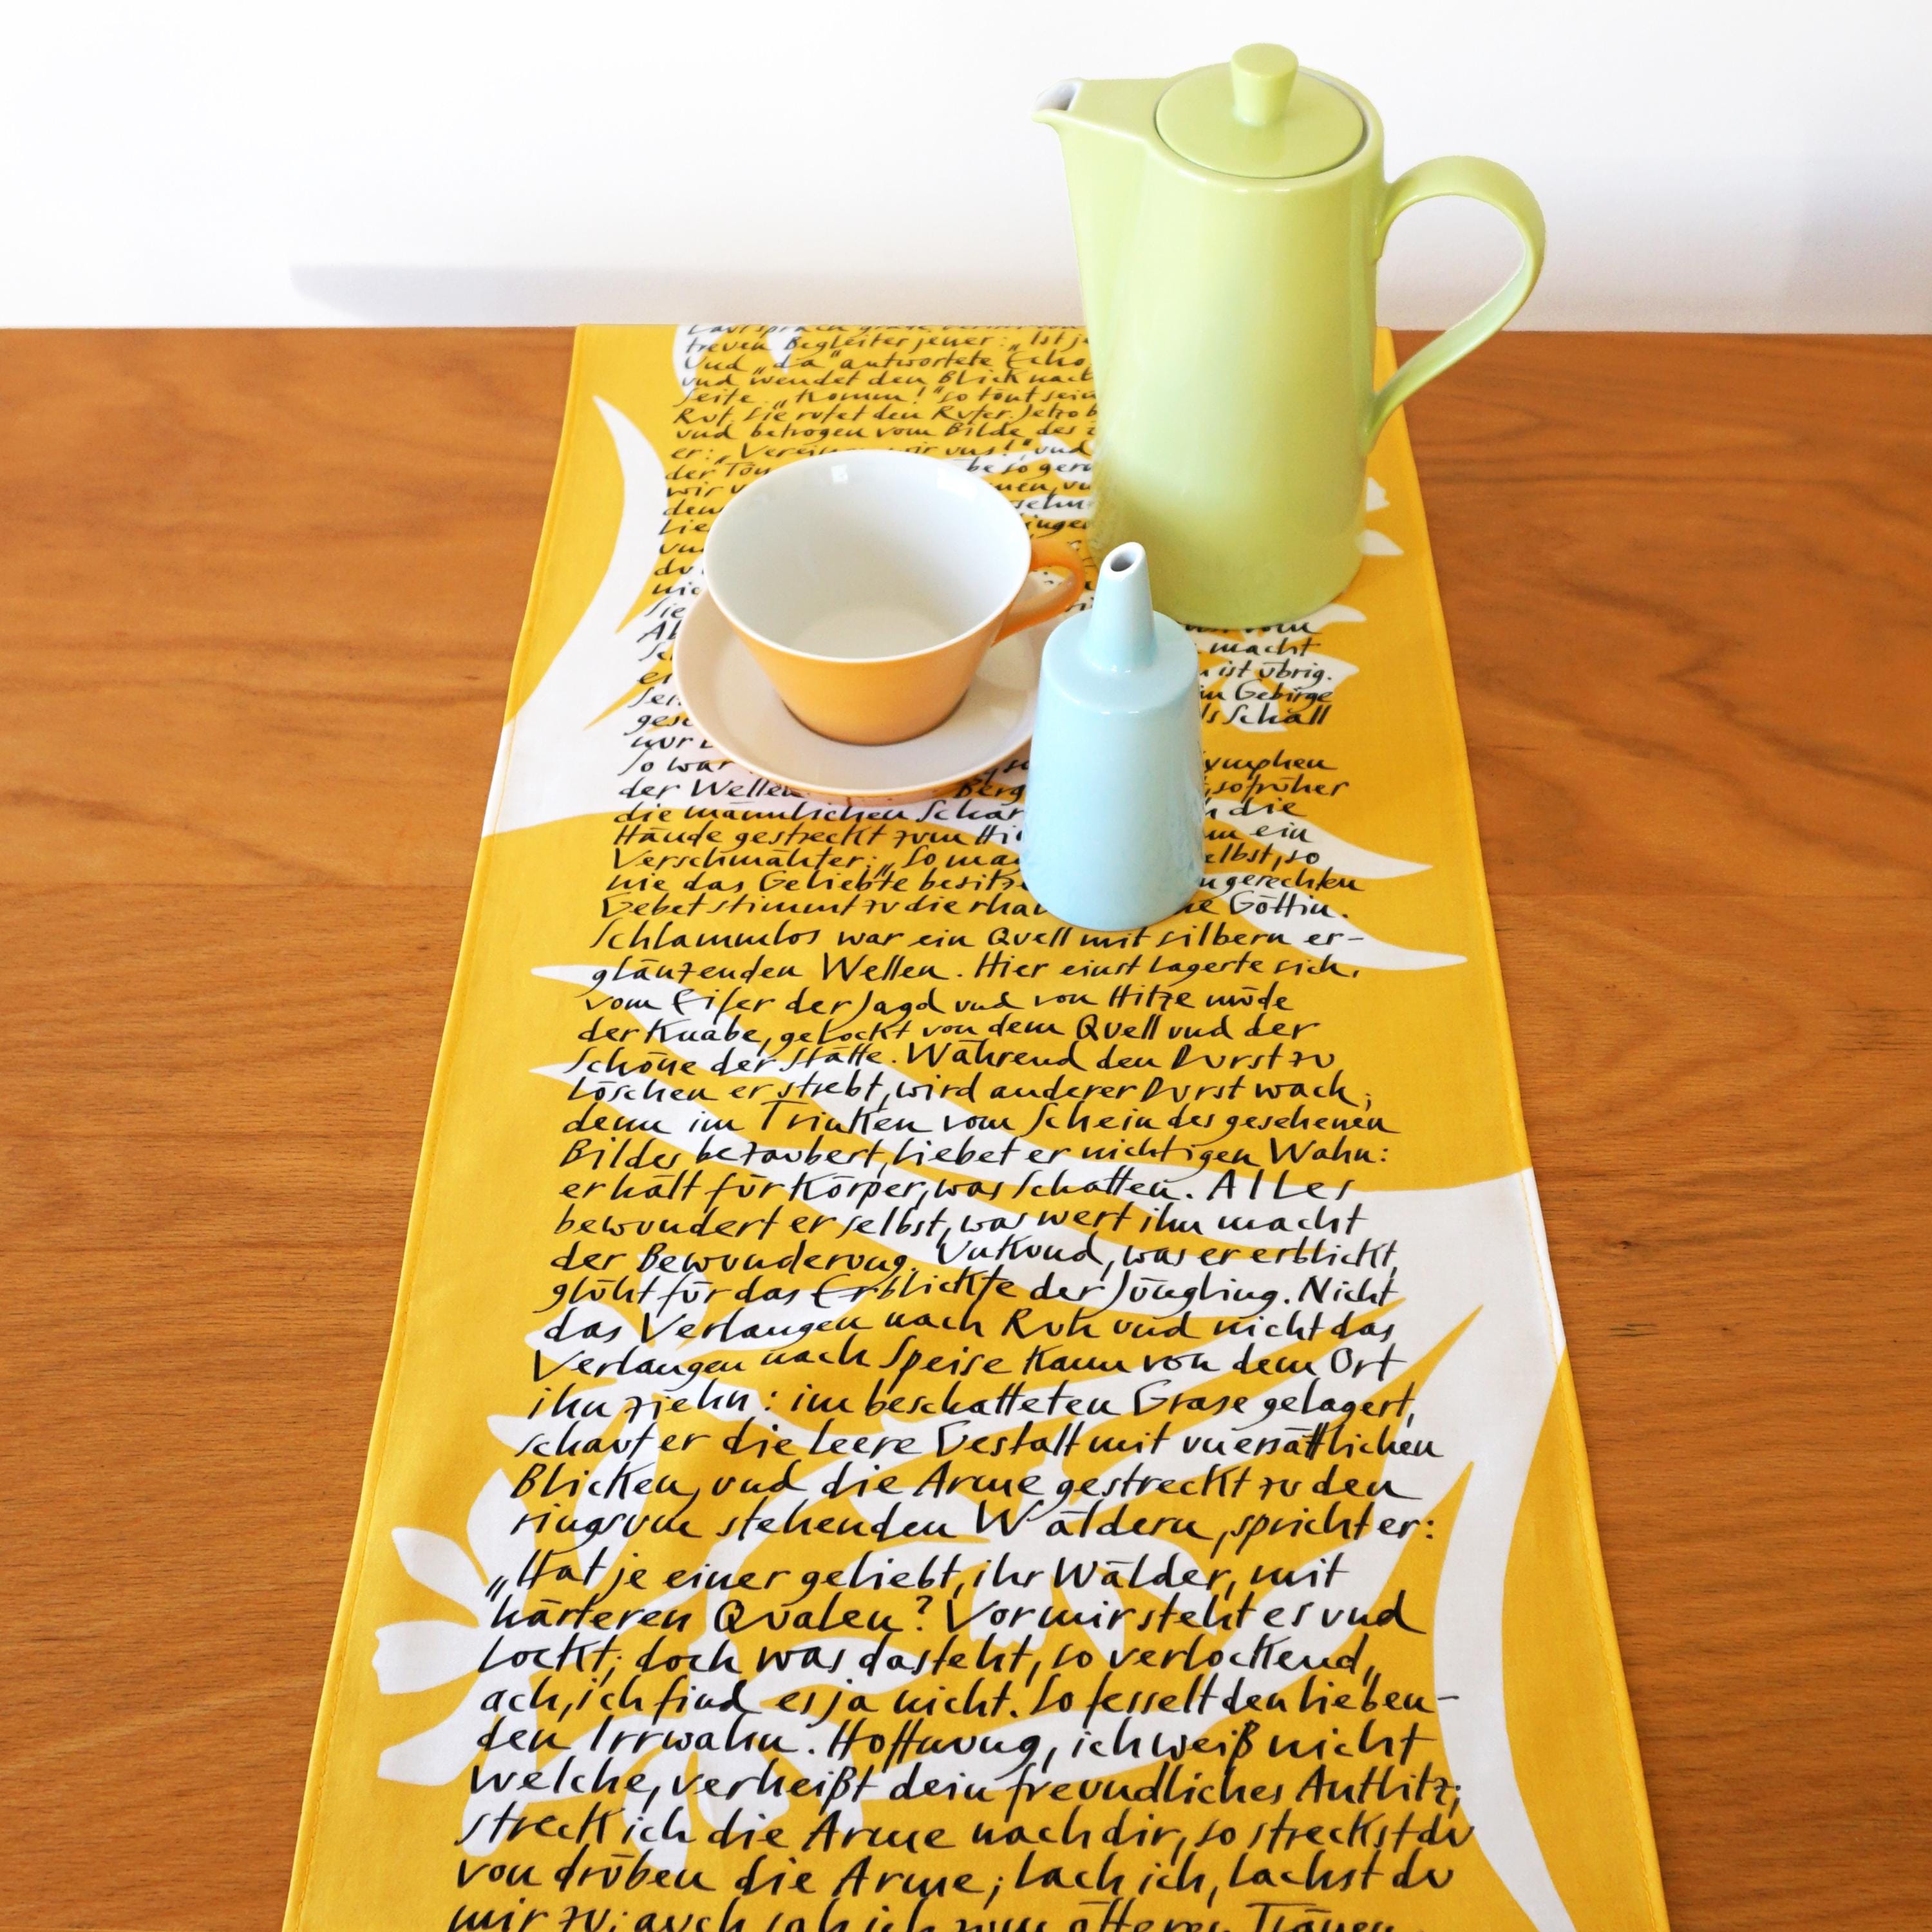 treuen Begleiter jener: „Ist je
Und „da" antwortete Echo
und wendet den Blick nach
Seite. „Komm!" so tönt sein
Ruf. Sie rufet den Rufer. Jetzo b
und betrogen vom Bilde des
er: „Vereinen wir uns!" und
der Tön be so gern
wir
den
Lie
du
nic
Sie vom
macht
ist übrig.
im Gebirge
gesc ls Schall
nur
So war ymphen
der Wellen Berg , so früher
die männlichen Schar die
Hände gestreckt zum Hi ein
Verschmähter: „So ma elbst, so
nie das Geliebte besitze gerechten
Gebet stimmt zu die rha ne Göttin.
Schlammlos war ein Quell mit silbern er-
glänzenden Wellen. Hier einst lagerte sich,
vom Eifer der Jagd und von Hitze müde
der Knabe, gelockt von dem Quell und der
Schöne der Stätte. Während den Durst zu
löschen er strebt, wird anderer Durst wach;
denn im Trinken vom Schein des gesehenen
Bildes bezaubert, liebet er nichtigen Wahn:
er hält für Körper, was Schatten. Alles
bewundert er selbst, was wert ihn macht
der Bewunderung. Unkund, was er erblickt,
glüht für das Erblickte der Jüngling. Nicht
das Verlangen nach Ruh und nicht das
Verlangen nach Speise kann von dem Ort
ihn ziehn: im beschatteten Grase gelagert,
schaut er die leere Gestalt mit unersättlichen
Blicken, und die Arme gestreckt zu den
ringsum stehenden Wäldern, spricht er:
„Hat je einer geliebt, ihr Wälder, mit
härteren Qualen? Vor mir steht es und
lockt; doch was dasteht, so verlockend,
ach, ich find es ja nicht. So fesselt den lieben-
den Irrwahn. Hoffnung, ich weiß nicht
welche, verheißt dein freundliches Antlitz;
streck ich die Arme nach dir, so streckst du
von drüben die Arme; lach ich, lachst du
mir zu; auch sah ich zum öfteren Tränen